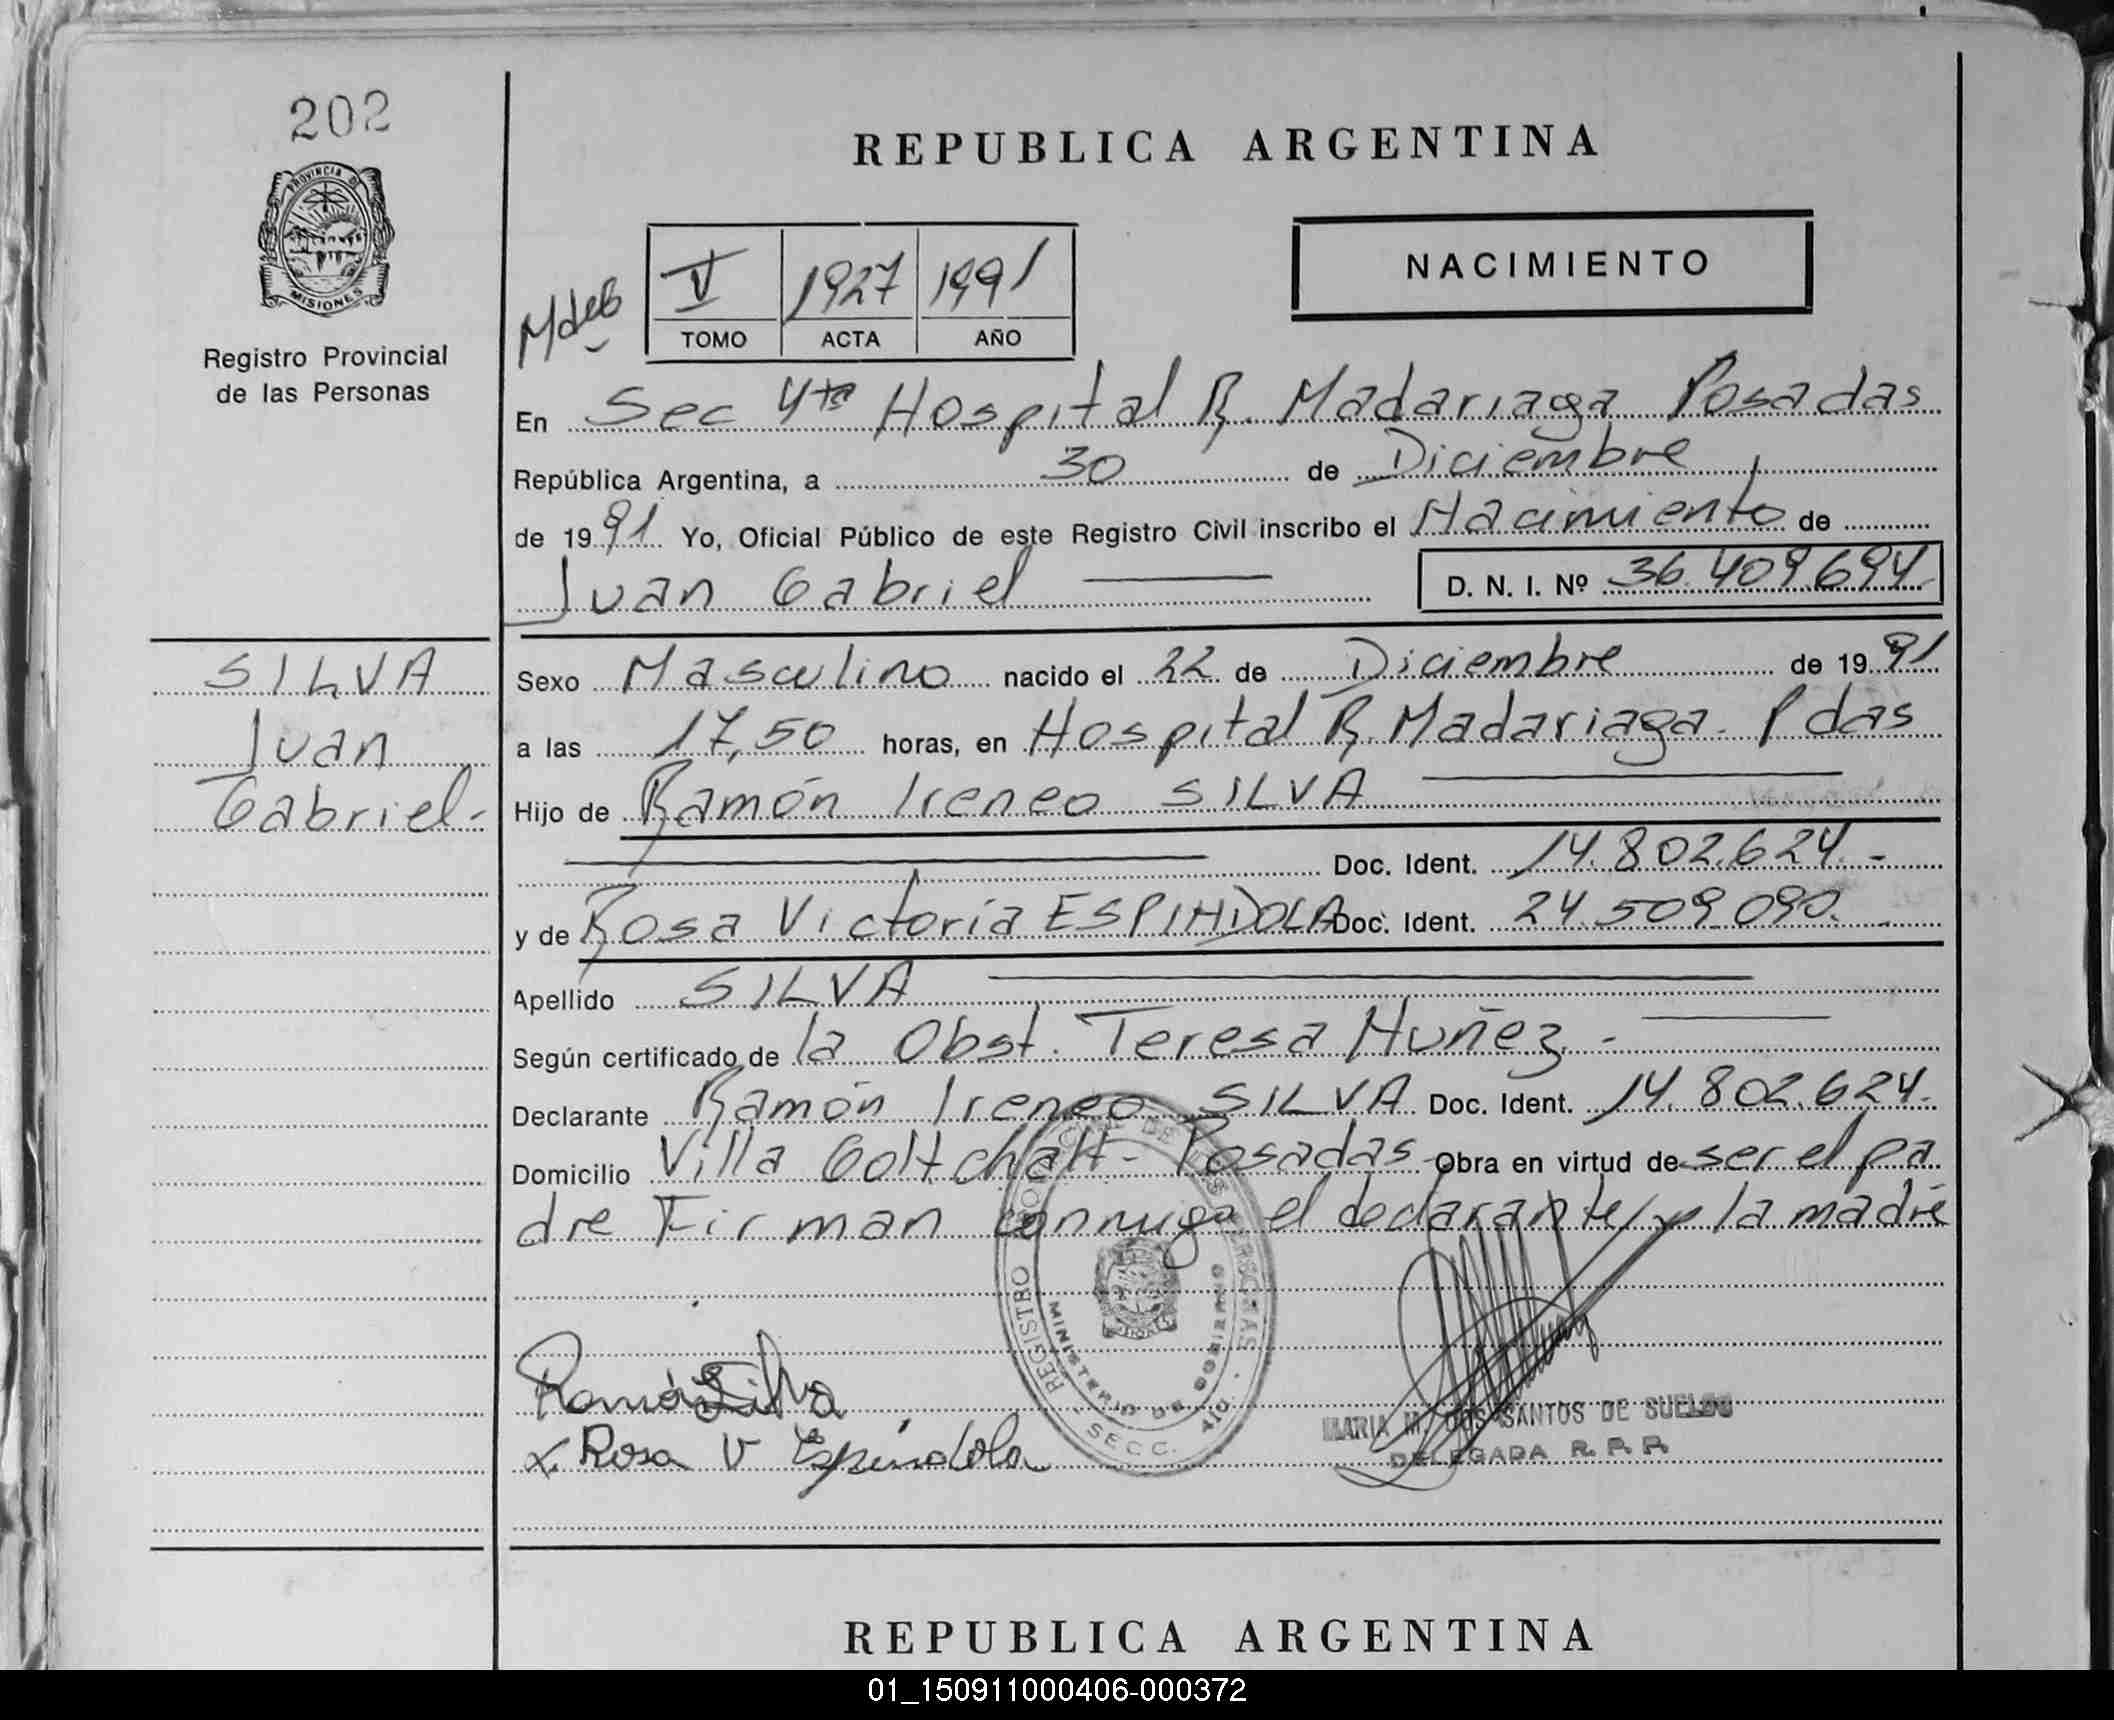 202
REPUBLICA ARGENTINA
PROVINCIA DE
MISIONES
Registro Provincial
de las Personas
V 1927 1991
TOMO ACTA AÑO
NACIMIENTO
En Sec 4ta Hospital R. Madariaga Posadas
República Argentina, a 30 de Diciembre
de 1991 Yo, Oficial Público de este Registro Civil inscribo el Nacimiento de
Juan Gabriel
D. N. I. Nº 36.409.694
SILVA
Juan
Gabriel-
Sexo Masculino nacido el 22 de Diciembre de 1991
a las 17,50 horas, en Hospital R. Madariaga. Pdas
Hijo de Ramón Ireneo SILVA
Doc. Ident. 14.802.624.-
y de Rosa Victoria ESPINDOLA Doc. Ident. 24.509.090.
Apellido SILVA
Según certificado de la Obst. Teresa Nuñez.-
Declarante Ramón Ireneo SILVA Doc. Ident. 14.802.624.
Domicilio Villa Goltchalt- Posadas Obra en virtud de ser el pa
dre Firman conmigo el declarante y la madre
REGISTRO DE LAS PERSONAS
MINISTERIO DE GOBIERNO
SECC. 4ta.
Ramón Silva
x Rosa V Espíndola
MARIA M. DOS SANTOS DE SUELDO
DELEGADA R. P. P.
REPUBLICA ARGENTINA
01_150911000406-000372